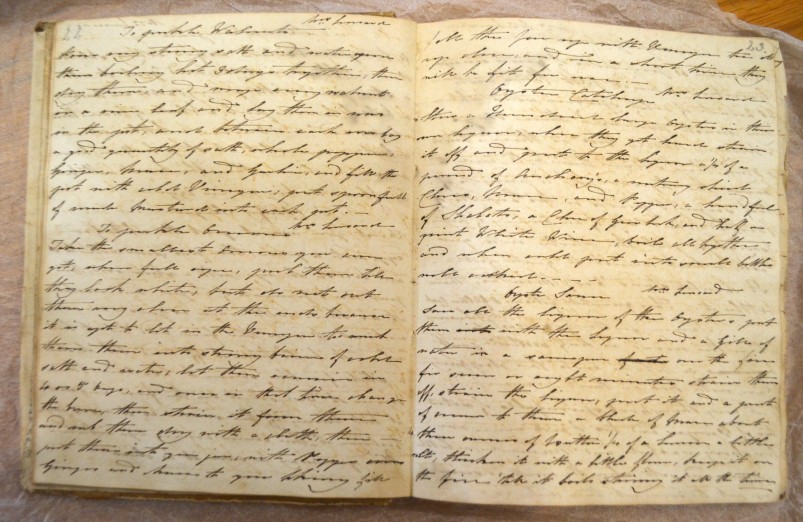 22
To pickle Walnuts Mrs Howard
very strong salt and water pour
them boiling hot days together, then
dry them, and wrap every walnut
on a vine leaf and lay them in rows
in the pot, and between each row lay
a good quantity of salt, whole pepper,
Ginger, and Garlic, and fill the
pot with cold Vinegar, put a spoon full
of made Mustard into each pot.
To pickle Onions Mrs Howard
Take the smallest Onions you can
get, when full ripe, peel them till
they look white, but do not cut
them very close at the ends because
it is apt to let in the Vinegar too much
throw them into strong brine of cold
salt and water, let them remain in
4 or 5 days, and once in that time change
the brine, then strain it from them
and rub them dry with a cloth, then
put them into your jar, with Pepper
Ginger and to your liking fill
23
fill them up with Vinegar
up close and in a short time they
will be fit for use
Oyster Catchup Mrs Howard
Hundred large Oysters in their
own liquor, when they get hard strain
it off and put to the liquor ½ of a
pound of Anchovies, a nutmeg sliced
Cloves, Mace, and Pepper, a handful
of Shalots, a Clove of Garlick, and half a
pint White Wine, boil all together
and when cold put into small bottles
well corked
Oyster Sauce Mrs Howard
Save all the liquor of the Oysters, put
them with the liquor and a Gill of
water in a saucepan over the fire
for seven or eight minutes strain them
off, strain the liquor, put it and a pint
of cream to them a blade of Mace about
three ounces of butter, ½ of a lemon a little
salt, thicken it with a little flour, keep it on
the fire till it boils stirring it all the time